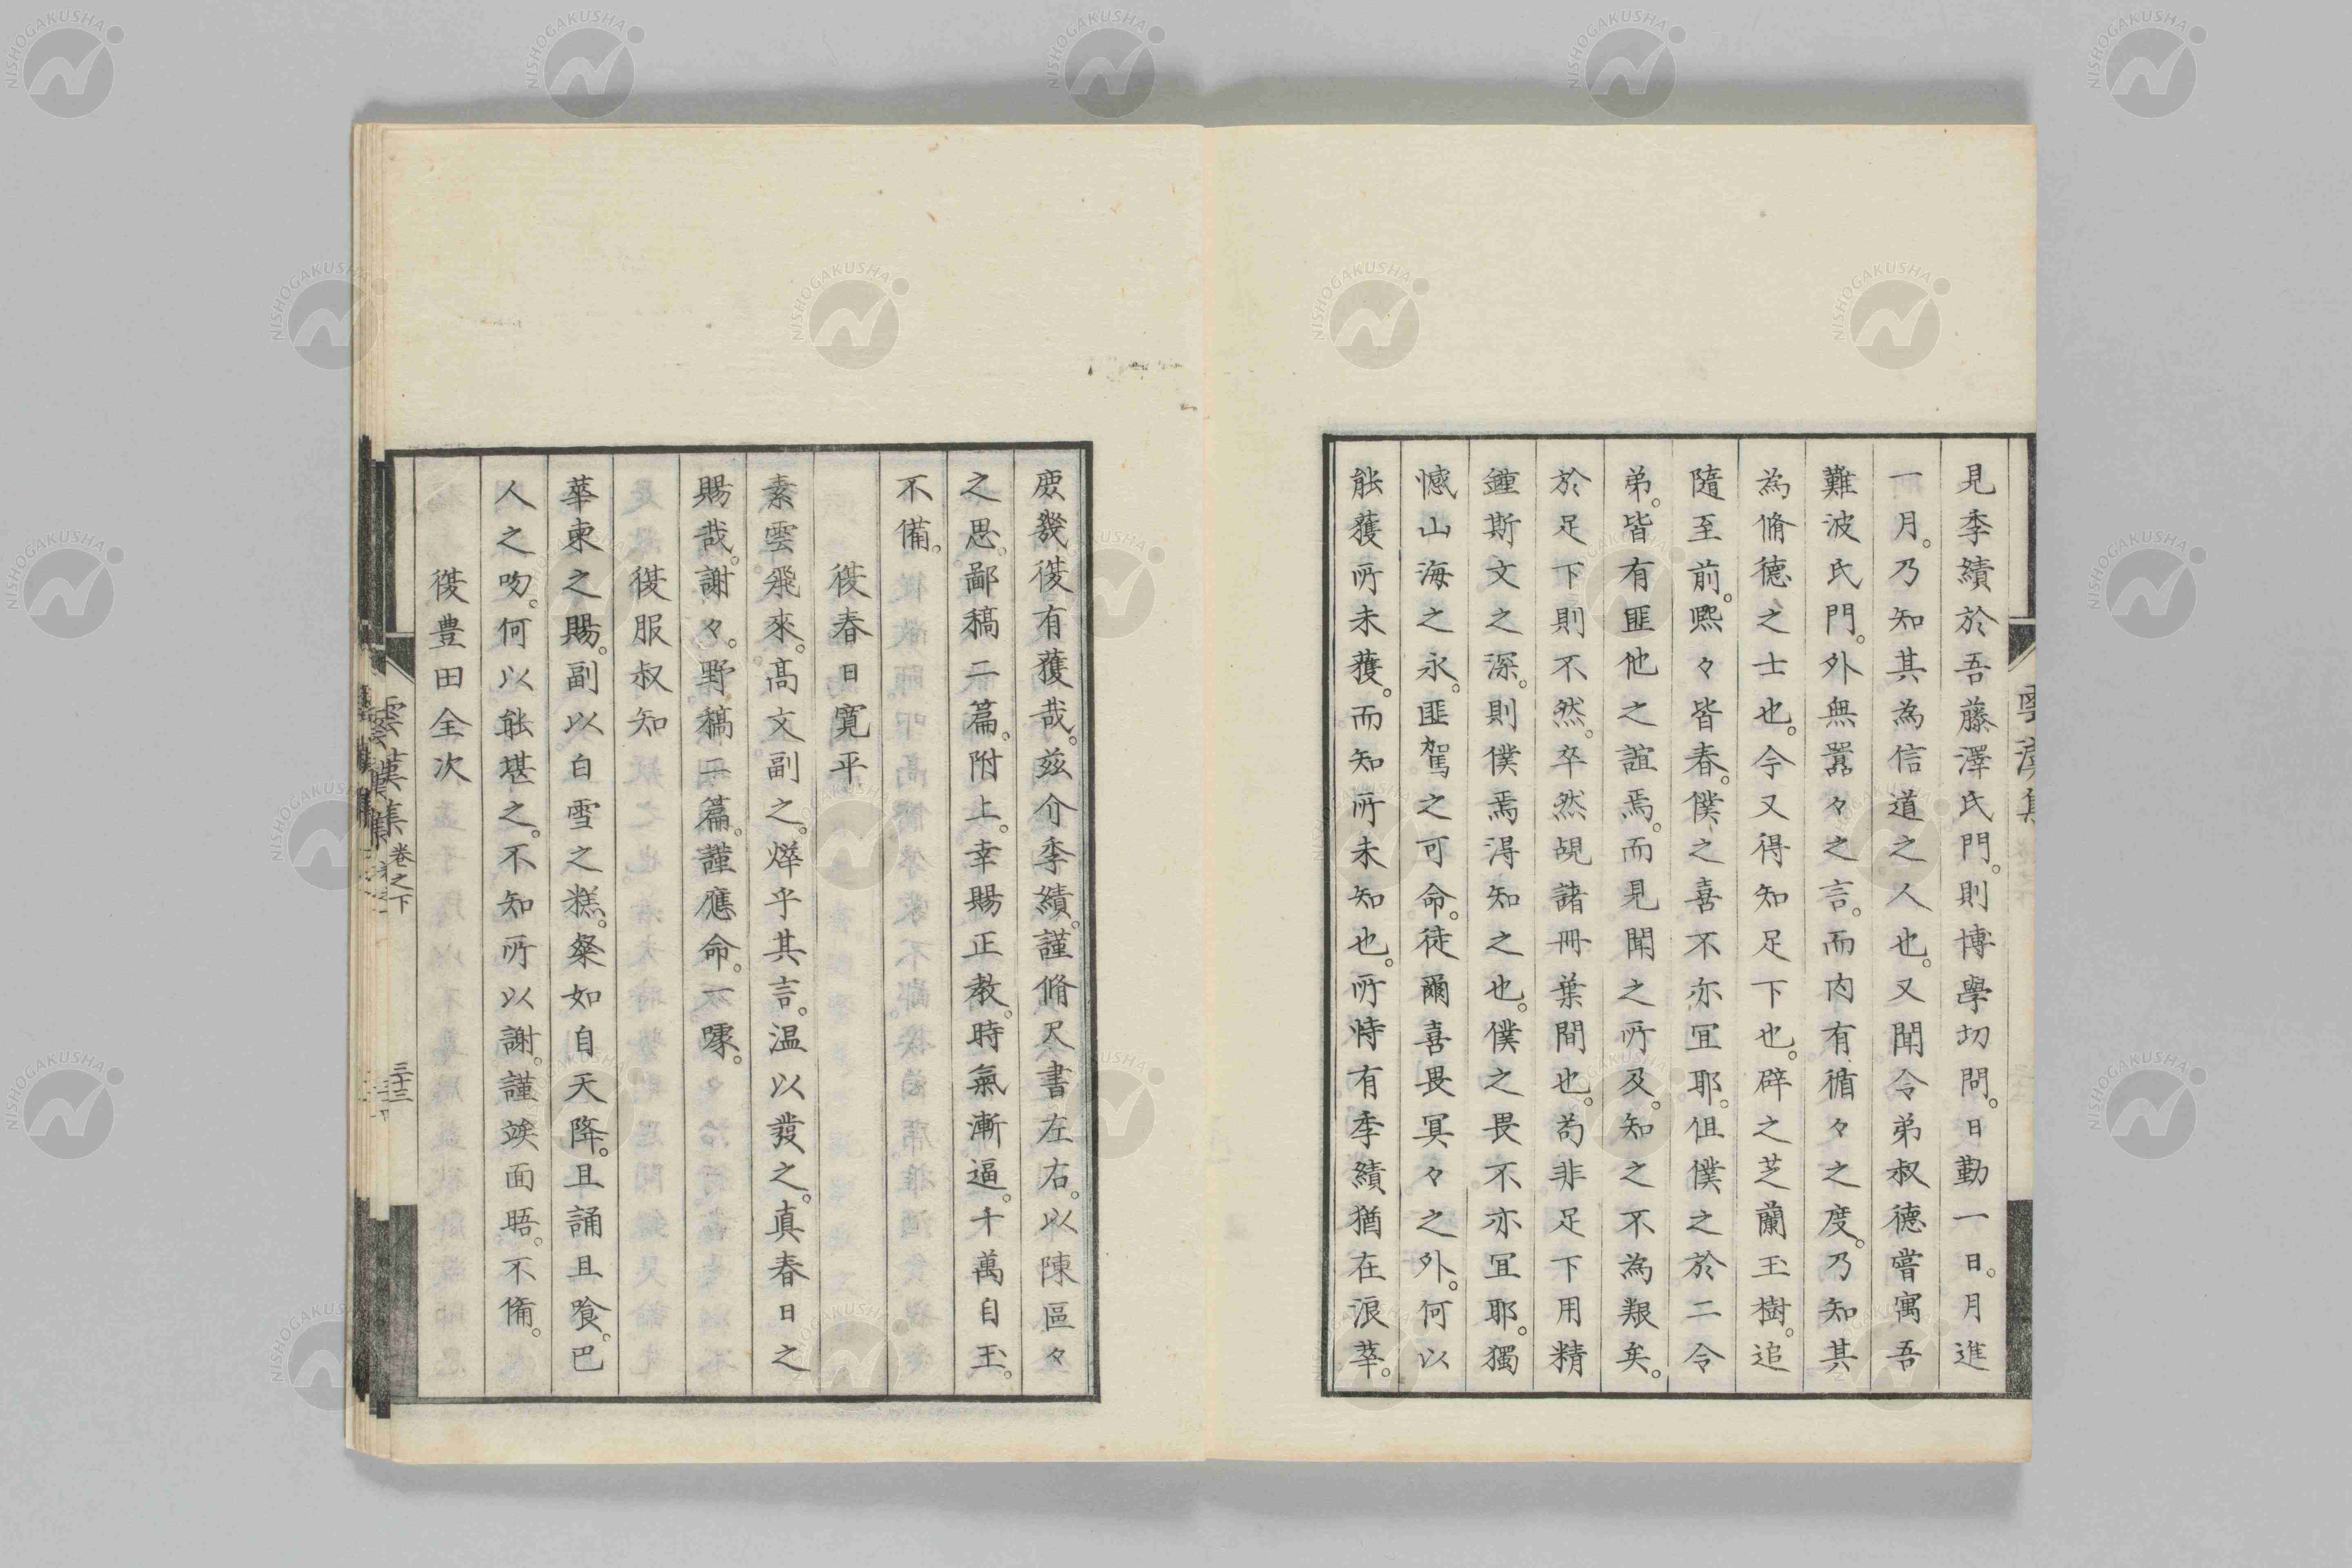 見季績於吾藤澤氏門。則博學切問。日勤一日。月進
一月。乃知其為信道之人也。又聞令弟叔德嘗寓吾
難波氏門。外無囂々之言。而內有循々之度。乃知其
為脩德之士也。今又得知足下也。辟之芝蘭玉樹。追
隨至前。熙々皆春。僕之喜不亦冝耶。但僕之於二令
弟。皆有匪他之誼焉。而見聞之所及。知之不為艱矣。
於足下則不然。卒然覘諸冊葉間也。苟非足下用精
鍾斯文之深。則僕焉得知之也。僕之畏不亦冝耶。獨
憾山海之永。匪駕之可命。徒爾喜畏冥々之外。何以
能獲所未獲。而知所未知也。所恃有季績猶在浪華。
庶幾復有獲哉。茲介季績。謹脩尺書左右。以陳區々
之思。鄙稿二篇。附上。幸賜正教。時氣漸逼。千萬自玉。
不備。
復春日寬平
素雲飛來。高文副之。燁乎其言。温以發之。真春日之
賜哉。謝々。野稿二篇。謹應命。一噱。
復服叔知
華柬之賜。副以白雪之糕。粲如自天降。且誦且飡。巴
人之吻。何以能堪之。不知所以謝。謹竢面晤。不備。
復豊田全次
雲漢集 卷之下 三十三
NISHOGAKUSHA